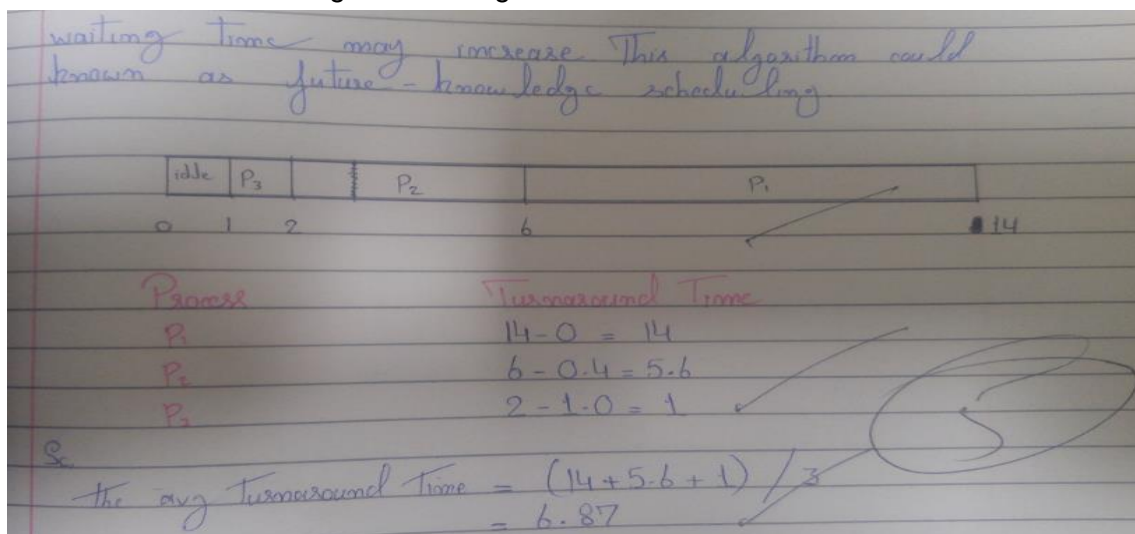 waiting time may increase. This algorithm could
known as future-knowledge scheduling
idle P3 P2 P1
0 1 2 6 14
Process Turnaround Time
P1 14-0 = 14
P2 6-0.4 = 5.6
P3 2-1.0 = 1
So
the avg Turnaround Time = (14+5.6+1)/3
= 6.87
5